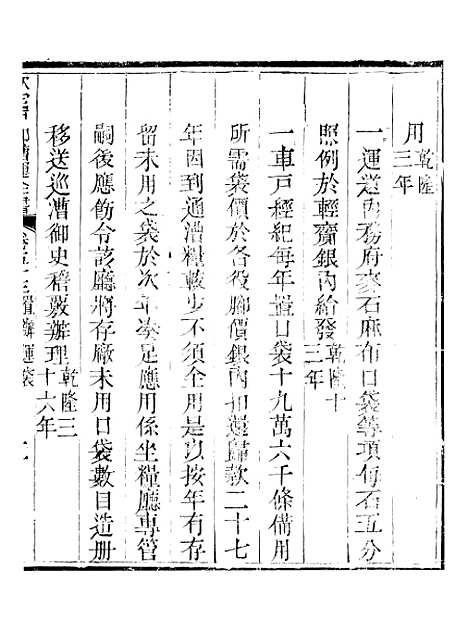 用乾隆三年
一運送內務府米石麻布口袋等項每石五分
照例於輕賫銀內給發乾隆十三年
一車戶經紀每年置口袋十九萬六千條備用
所需袋價於各役腳價銀內扣還歸款二十七
年因到通漕糧較少不須全用是以按年有存
留未用之袋於次年湊足應用係坐糧廳專管
嗣後應飭令該廳將存廠未用口袋數目造冊
移送巡漕御史稽覈辦理乾隆三十六年
欽定戶部漕運全書